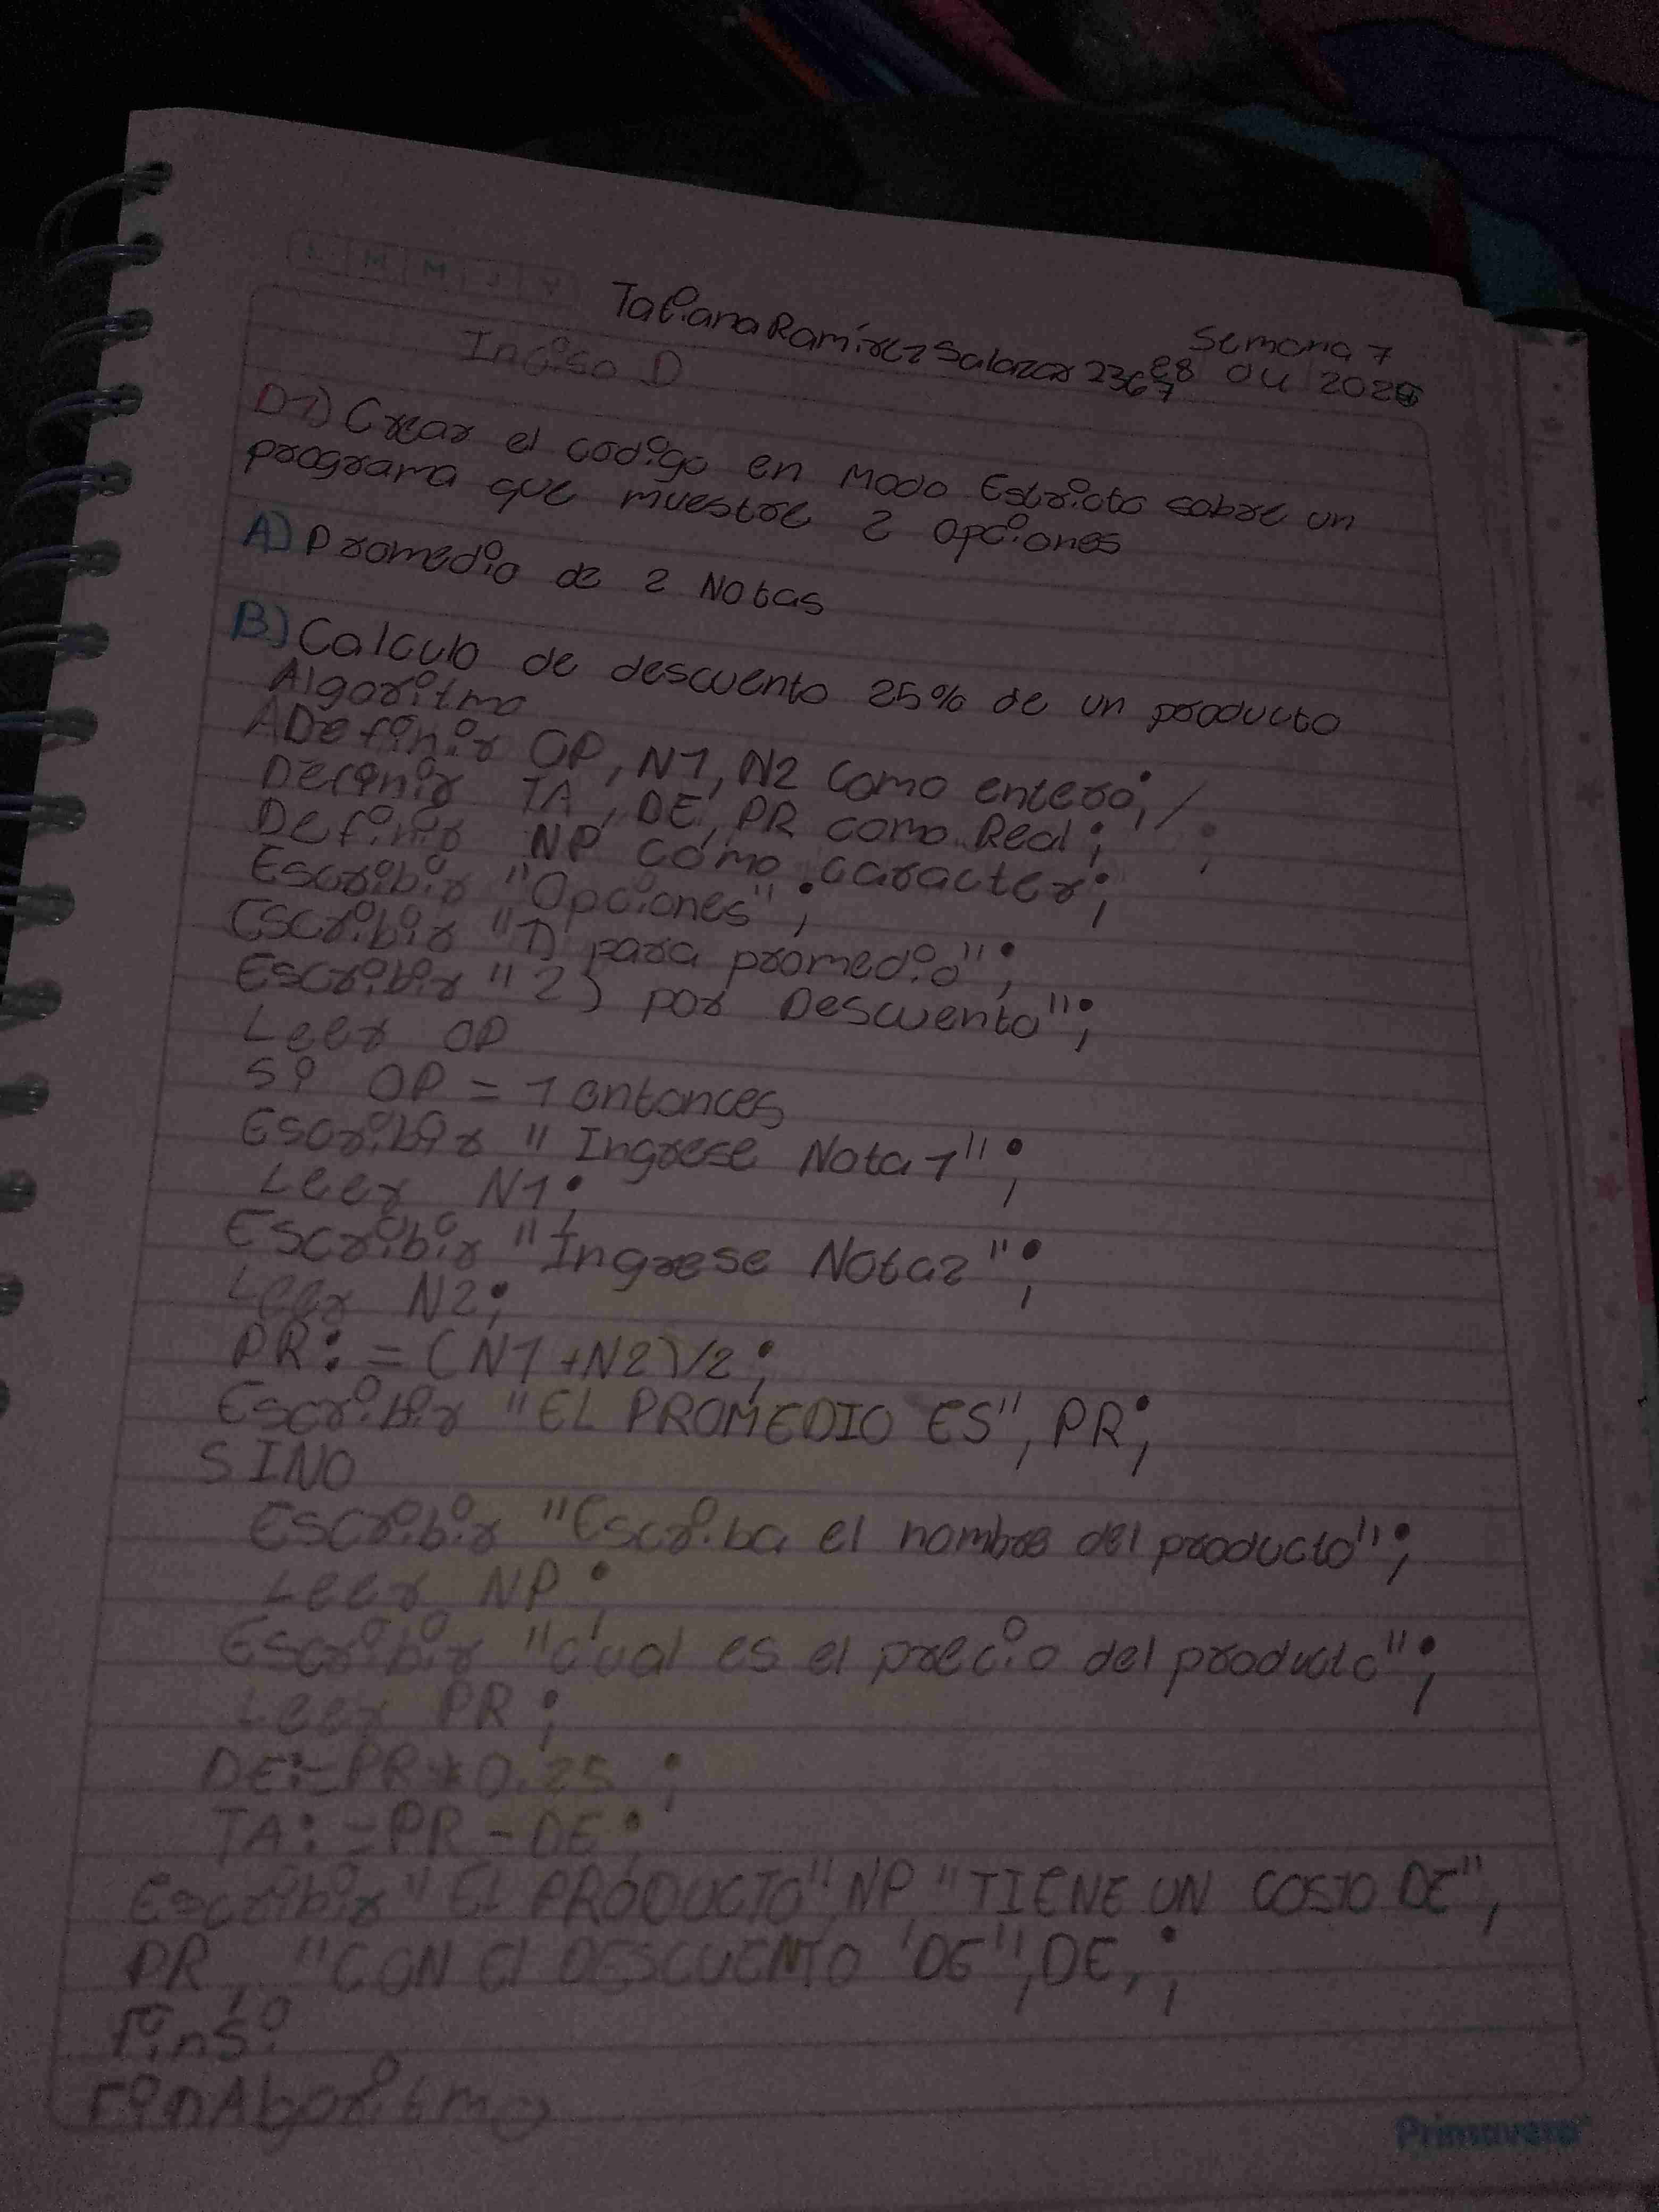 L M M J V
Tatiana Ramírez Salazar 2367
Semana 7
28 04 2025
Inciso D
D1) Crear el codigo en Modo Estricto sobre un
programa que muestre 2 opciones
A) Promedio de 2 Notas
B) Calculo de descuento 25% de un producto
Algoritmo
ADefinir OP, N1, N2 como entero; /
Definir TA, DE, PR como Real; ;
Definir NP como caracter;
Escribir "Opciones";
Escribir "1) para promedio";
Escribir "2) por Descuento";
Leer OP
Si OP = 1 entonces
Escribir "Ingrese Nota 1";
Leer N1;
Escribir "Ingrese Nota2";
Leer N2;
PR:=(N1+N2)/2;
Escribir "EL PROMEDIO ES", PR;
SINO
Escribir "Escriba el nombre del producto";
Leer NP;
Escribir "Cual es el precio del producto";
Leer PR;
DE:=PR*0.25;
TA:=PR-DE;
Escribir "EL PRODUCTO" NP "TIENE UN COSTO DE",
PR, "CON El DESCUENTO DE", DE, ;
FinSi
FinAlgoritmo
Primavera